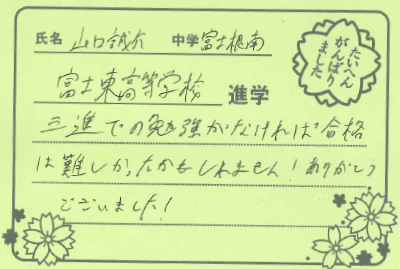 氏名 山口誠介 中学 富士根南
たいへん
がんばり
ました
富士東高等学校 進学
三進での勉強がなければ合格
は難しかったかもしれません！ありがとう
ございました！